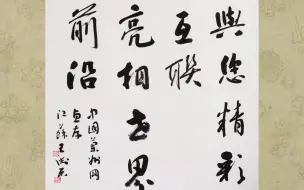 與您精彩
互聯
亮相世界
前沿
中國蘭州网
惠存
江蘇王